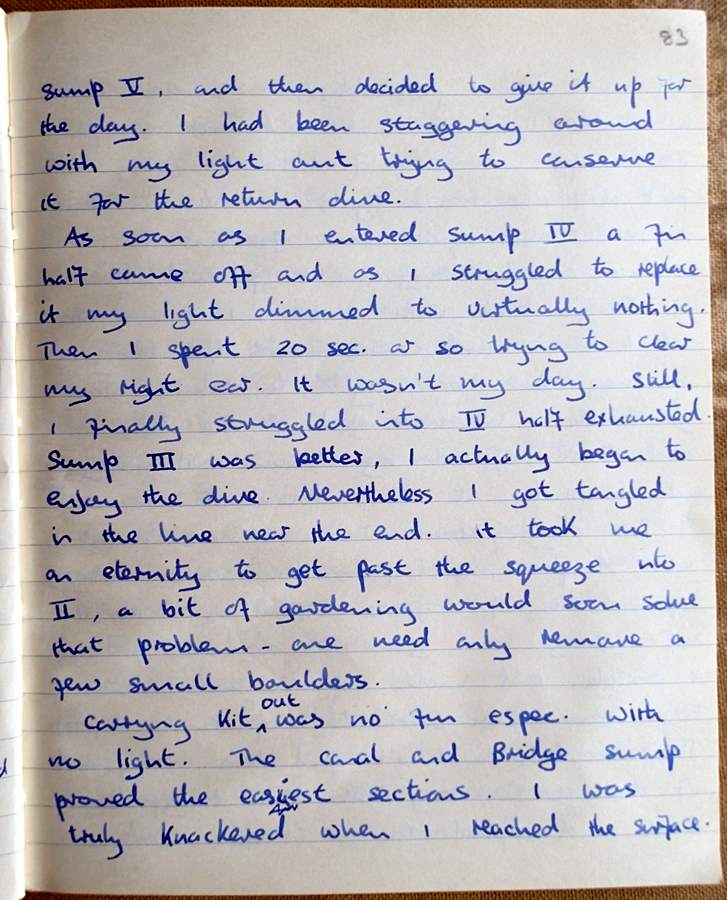 83
Sump V, and then decided to give it up for
the day. I had been staggering around
with my light out trying to conserve
it for the return dive.
As soon as I entered sump IV a fin
half came off and as I struggled to replace
it my light dimmed to virtually nothing.
Then I spent 20 sec. or so trying to clear
my right ear. It wasn't my day. Still,
I finally struggled into IV half exhausted.
Sump III was better, I actually began to
enjoy the dive. Nevertheless I got tangled
in the line near the end. It took me
an eternity to get past the squeeze into
II, a bit of gardening would soon solve
that problem - one need only remove a
few small boulders.
Carrying Kit out was no fun espec. with
no light. The canal and Bridge sump
proved the easiest sections. I was
truly Knackered when I reached the surface.